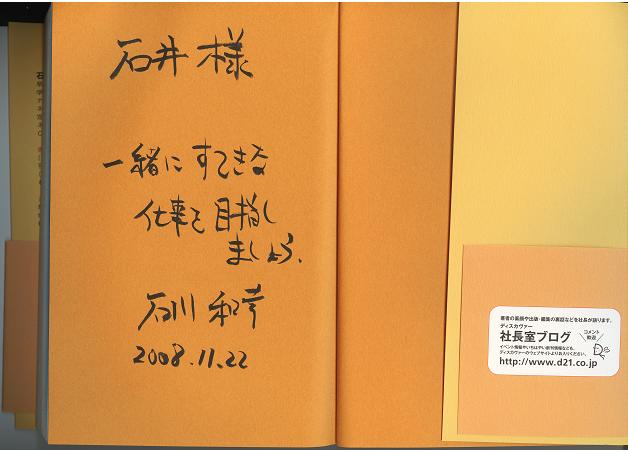 石井 様
一緒に すてきな
仕事を 目指し
ましょう。
石川 和幸
2008.11.22
著者の素顔や出版・編集の裏話などを社長が語ります。
ディスカヴァー
社長室ブログ
コメント
歓迎
イベント情報やいちはやい新刊情報なども、
ディスカヴァーのウェブサイトよりお入りください。
http://www.d21.co.jp